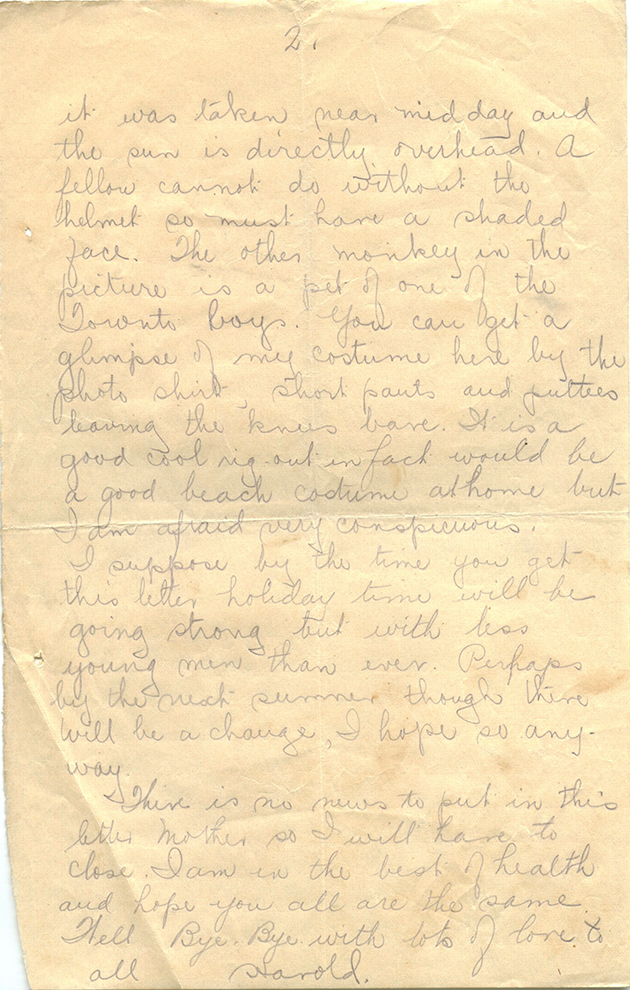 2.
it was taken near midday and
the sun is directly overhead. A
fellow cannot do without the
helmet so must have a shaded
face. The other monkey in the
picture is a pet of one of the
Toronto boys. You can get a
glimpse of my costume here by the
photo shirt, short pants and puttees
leaving the knees bare. It is a
good cool rig-out in fact would be
a good beach costume at home but
I am afraid very conspicuous.
I suppose by the time you get
this letter holiday time will be
going strong but with less
young men than ever. Perhaps
by the next summer though there
will be a change, I hope so any-
way.
There is no news to put in this
letter Mother so I will have to
close. I am in the best of health
and hope you all are the same.
Well Bye. Bye. with lots of love to
all Harold.